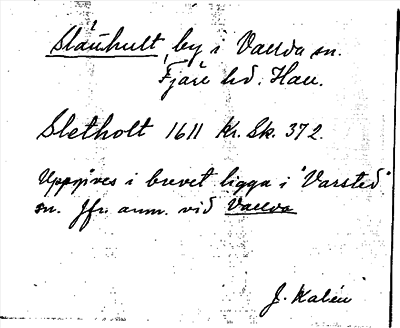 Slätthult, by i Vallda sn.
Fjäre hd. Hall.
Sletholt 1611 Kr. Sk. 372.
Uppgives i brevet ligga i "Varsted"
sn. Jfr anm. vid Vallda
J. Kalén